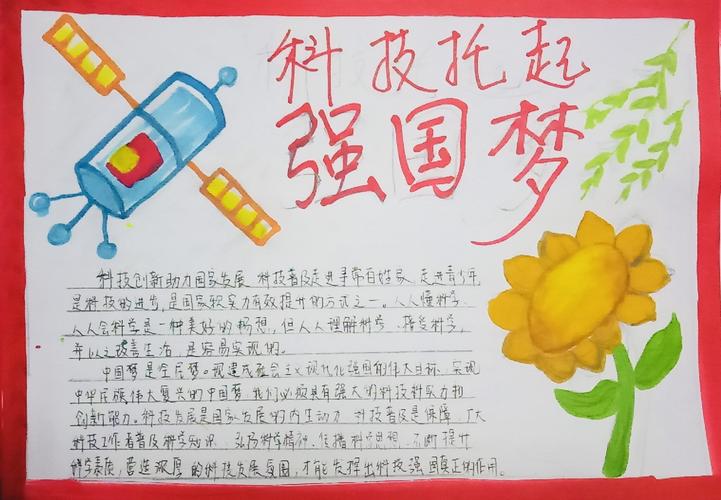 科技托起
强国梦
科技创新助力国家发展 科技普及走进寻常百姓家、走进青少年
是科技的进步,是国家软实力有效提升的方式之一。人人懂科学、
人人会科学是一种美好的畅想,但人人理解科学、接受科学,
并以之改善生活,是容易实现的。
中国梦是全民梦。现建成社会主义现代化强国的伟大目标、实现
中华民族伟大复兴的中国梦,我们必须具有强大的科技科实力和
创新能力。科技发展是国家发展的内生动力 科技普及是保障 广大
科技工作者普及科学知识、弘扬科学精神、传播科学思想、不断提升
科学素质,营造浓厚的科技发展氛围,才能发挥出科技强国真正的作用。